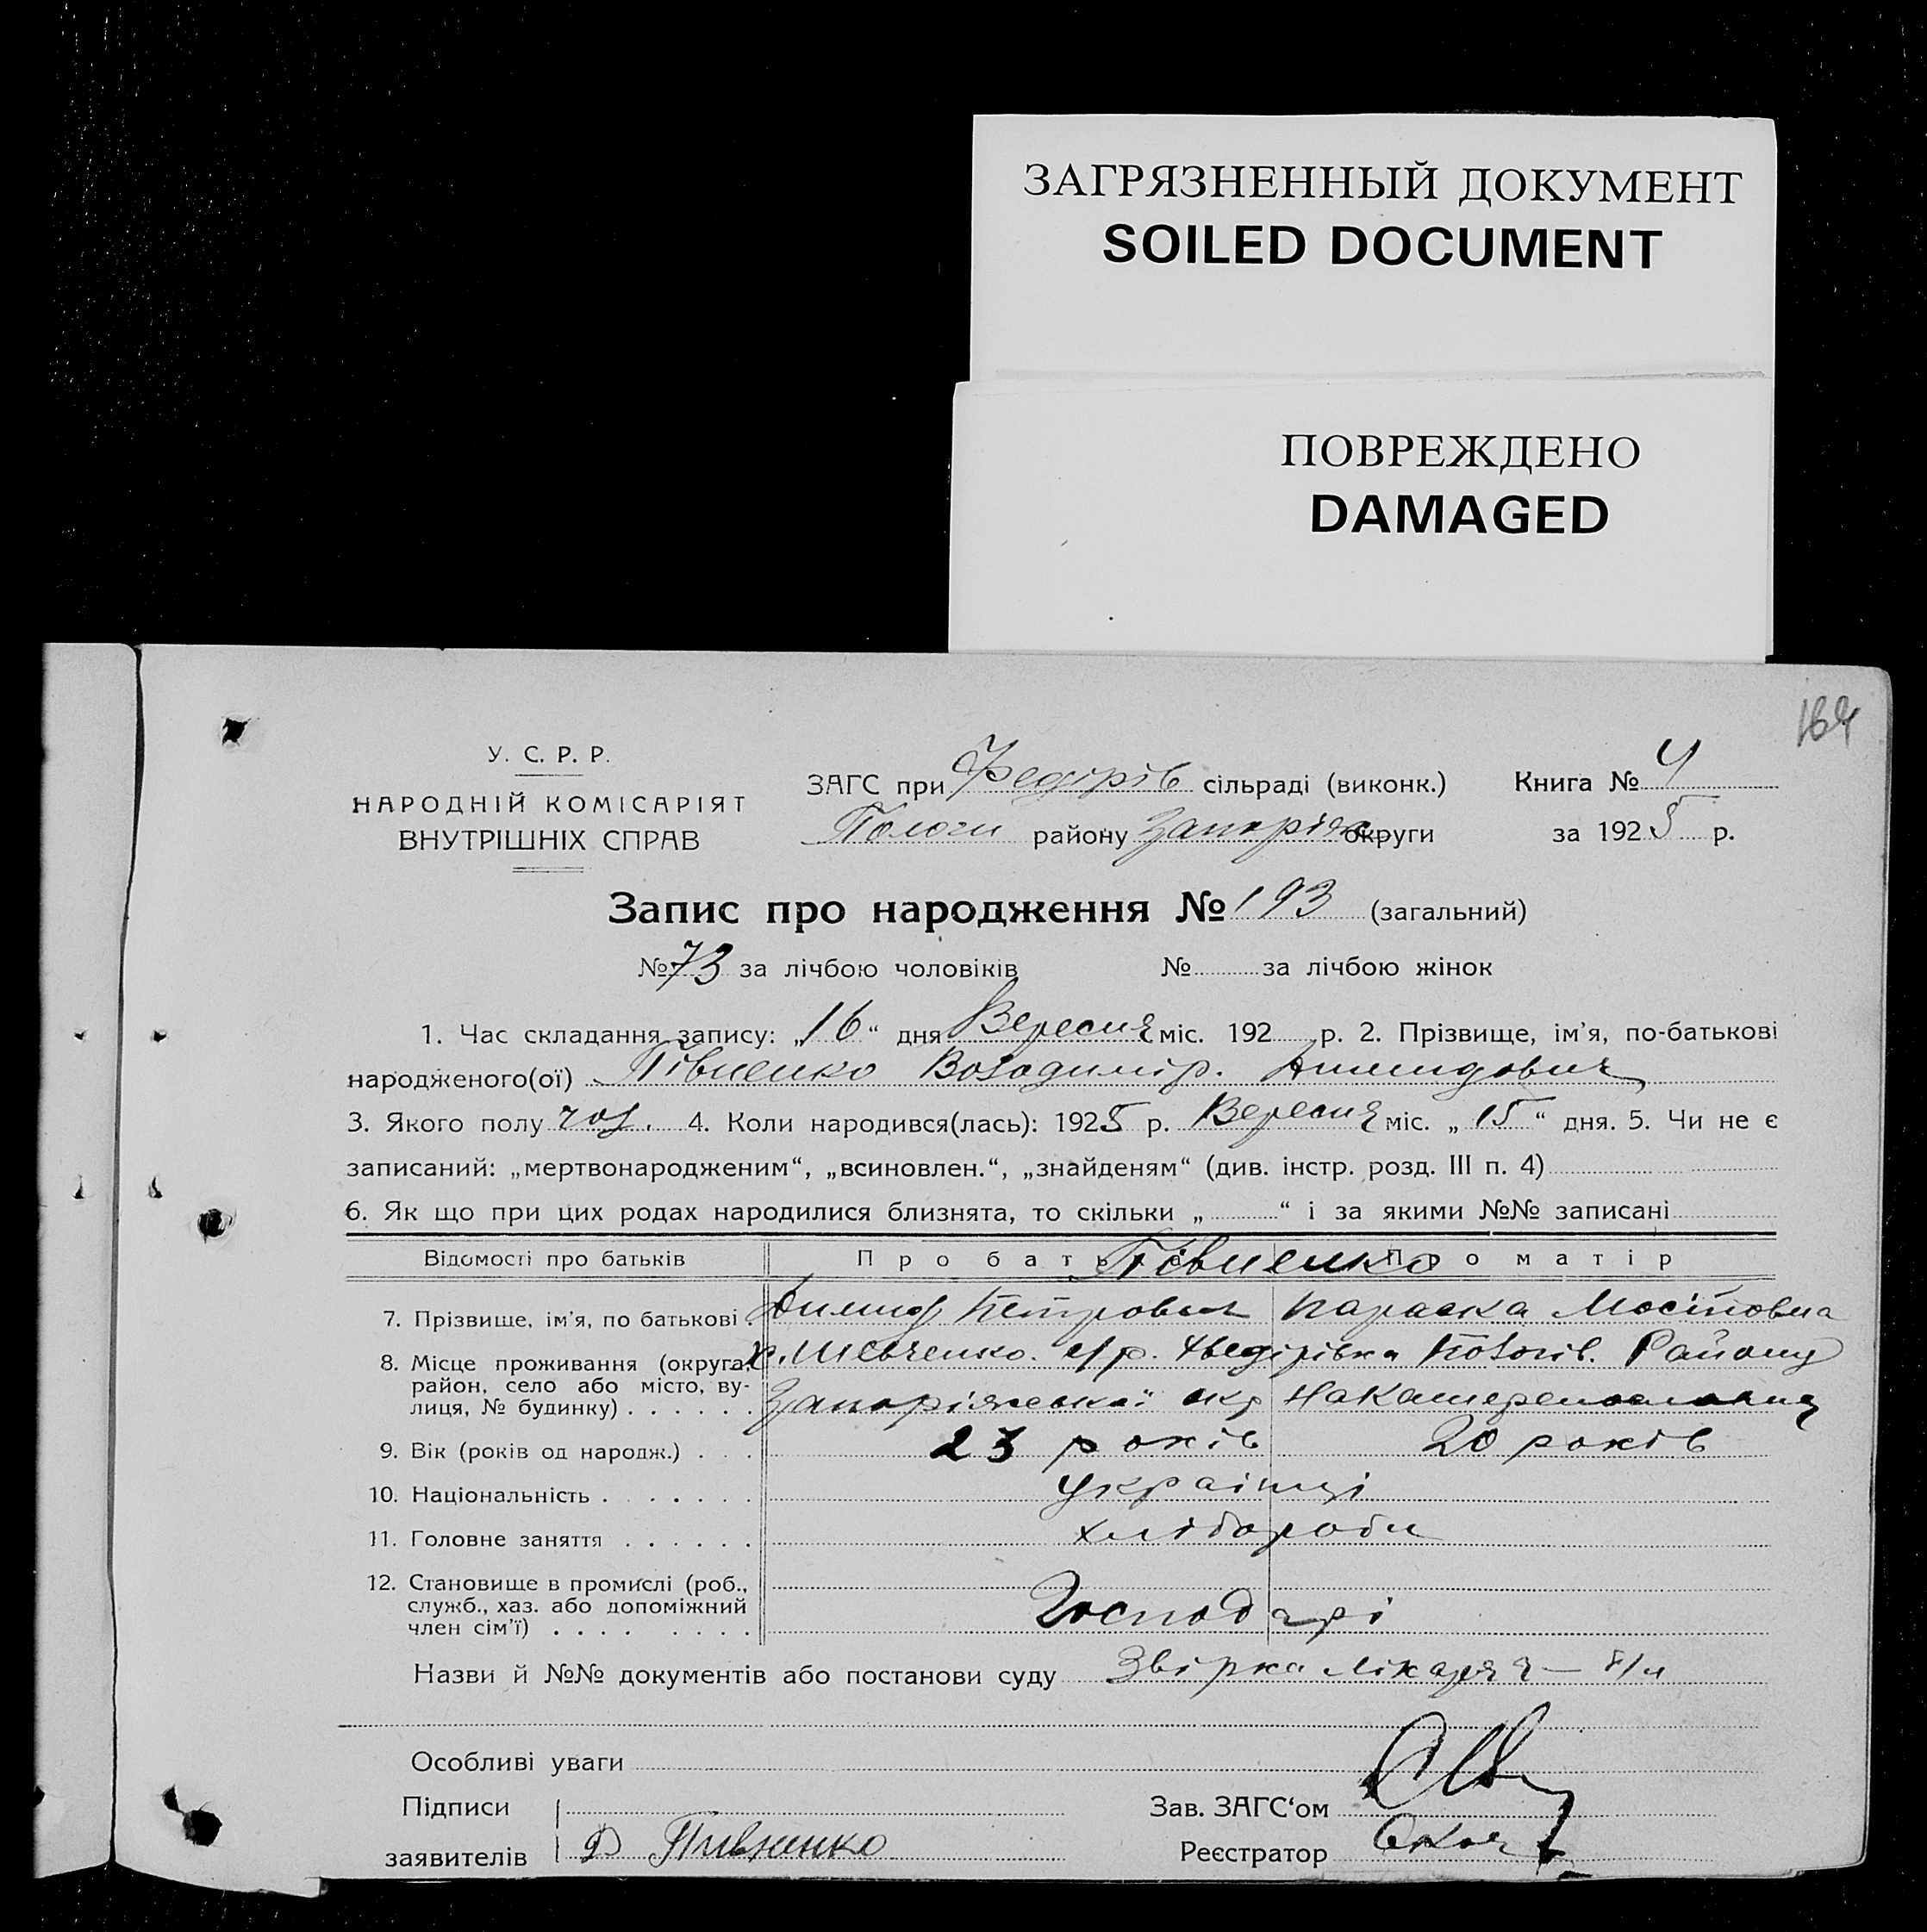 ЗАГРЯЗНЕННЫЙ ДОКУМЕНТ
SOILED DOCUMENT
ПОВРЕЖДЕНО
DAMAGED
169
У. С. Р. Р.
НАРОДНІЙ КОМІСАРІЯТ
ВНУТРІШНІХ СПРАВ
ЗАГС при Федірів сільраді (виконк.) Книга № 4
Пологи району Запоріж округи за 1925 р.
Запис про народження № 193 (загальний)
№ 73 за лічбою чоловіків № за лічбою жінок
1. Час складання запису: „16“ дня Вересня міс. 192 р. 2. Прізвище, ім'я, по-батькові
народженого(ої) Півненко Володимір. Димидович
3. Якого полу чол. 4. Коли народився(лась): 1925 р. Вересня міс. „15“ дня. 5. Чи не є
записаний: „мертвонародженим“, „всиновлен.“, „знайденям“ (див. інстр. розд. III п. 4)
6. Як що при цих родах народилися близнята, то скільки „ “ і за якими №№ записані
Відомості про батьків Про батька Про матір
Півненко
7. Прізвище, ім'я, по батькові. Димид Петрович Параска Мосіповна
8. Місце проживання (округа, х. Шевченко. с/р. Федірівка Пологів. Району
район, село або місто, ву-
лиця, № будинку) . . . . . . Запоріжської окр
9. Вік (років од народж.) . . . 23 років 20 років
10. Національність . . . . . . . українці
11. Головне заняття . . . . . . хлібороби
12. Становище в промислі (роб.,
служб., хаз. або допоміжний Господарі
член сім'ї) . . . . . . . .
Назви й №№ документів або постанови суду Звірка лікаря —
Особливі уваги
Підписи
Зав. ЗАГС‘ом
заявителів Д Пивненко
Реєстратор